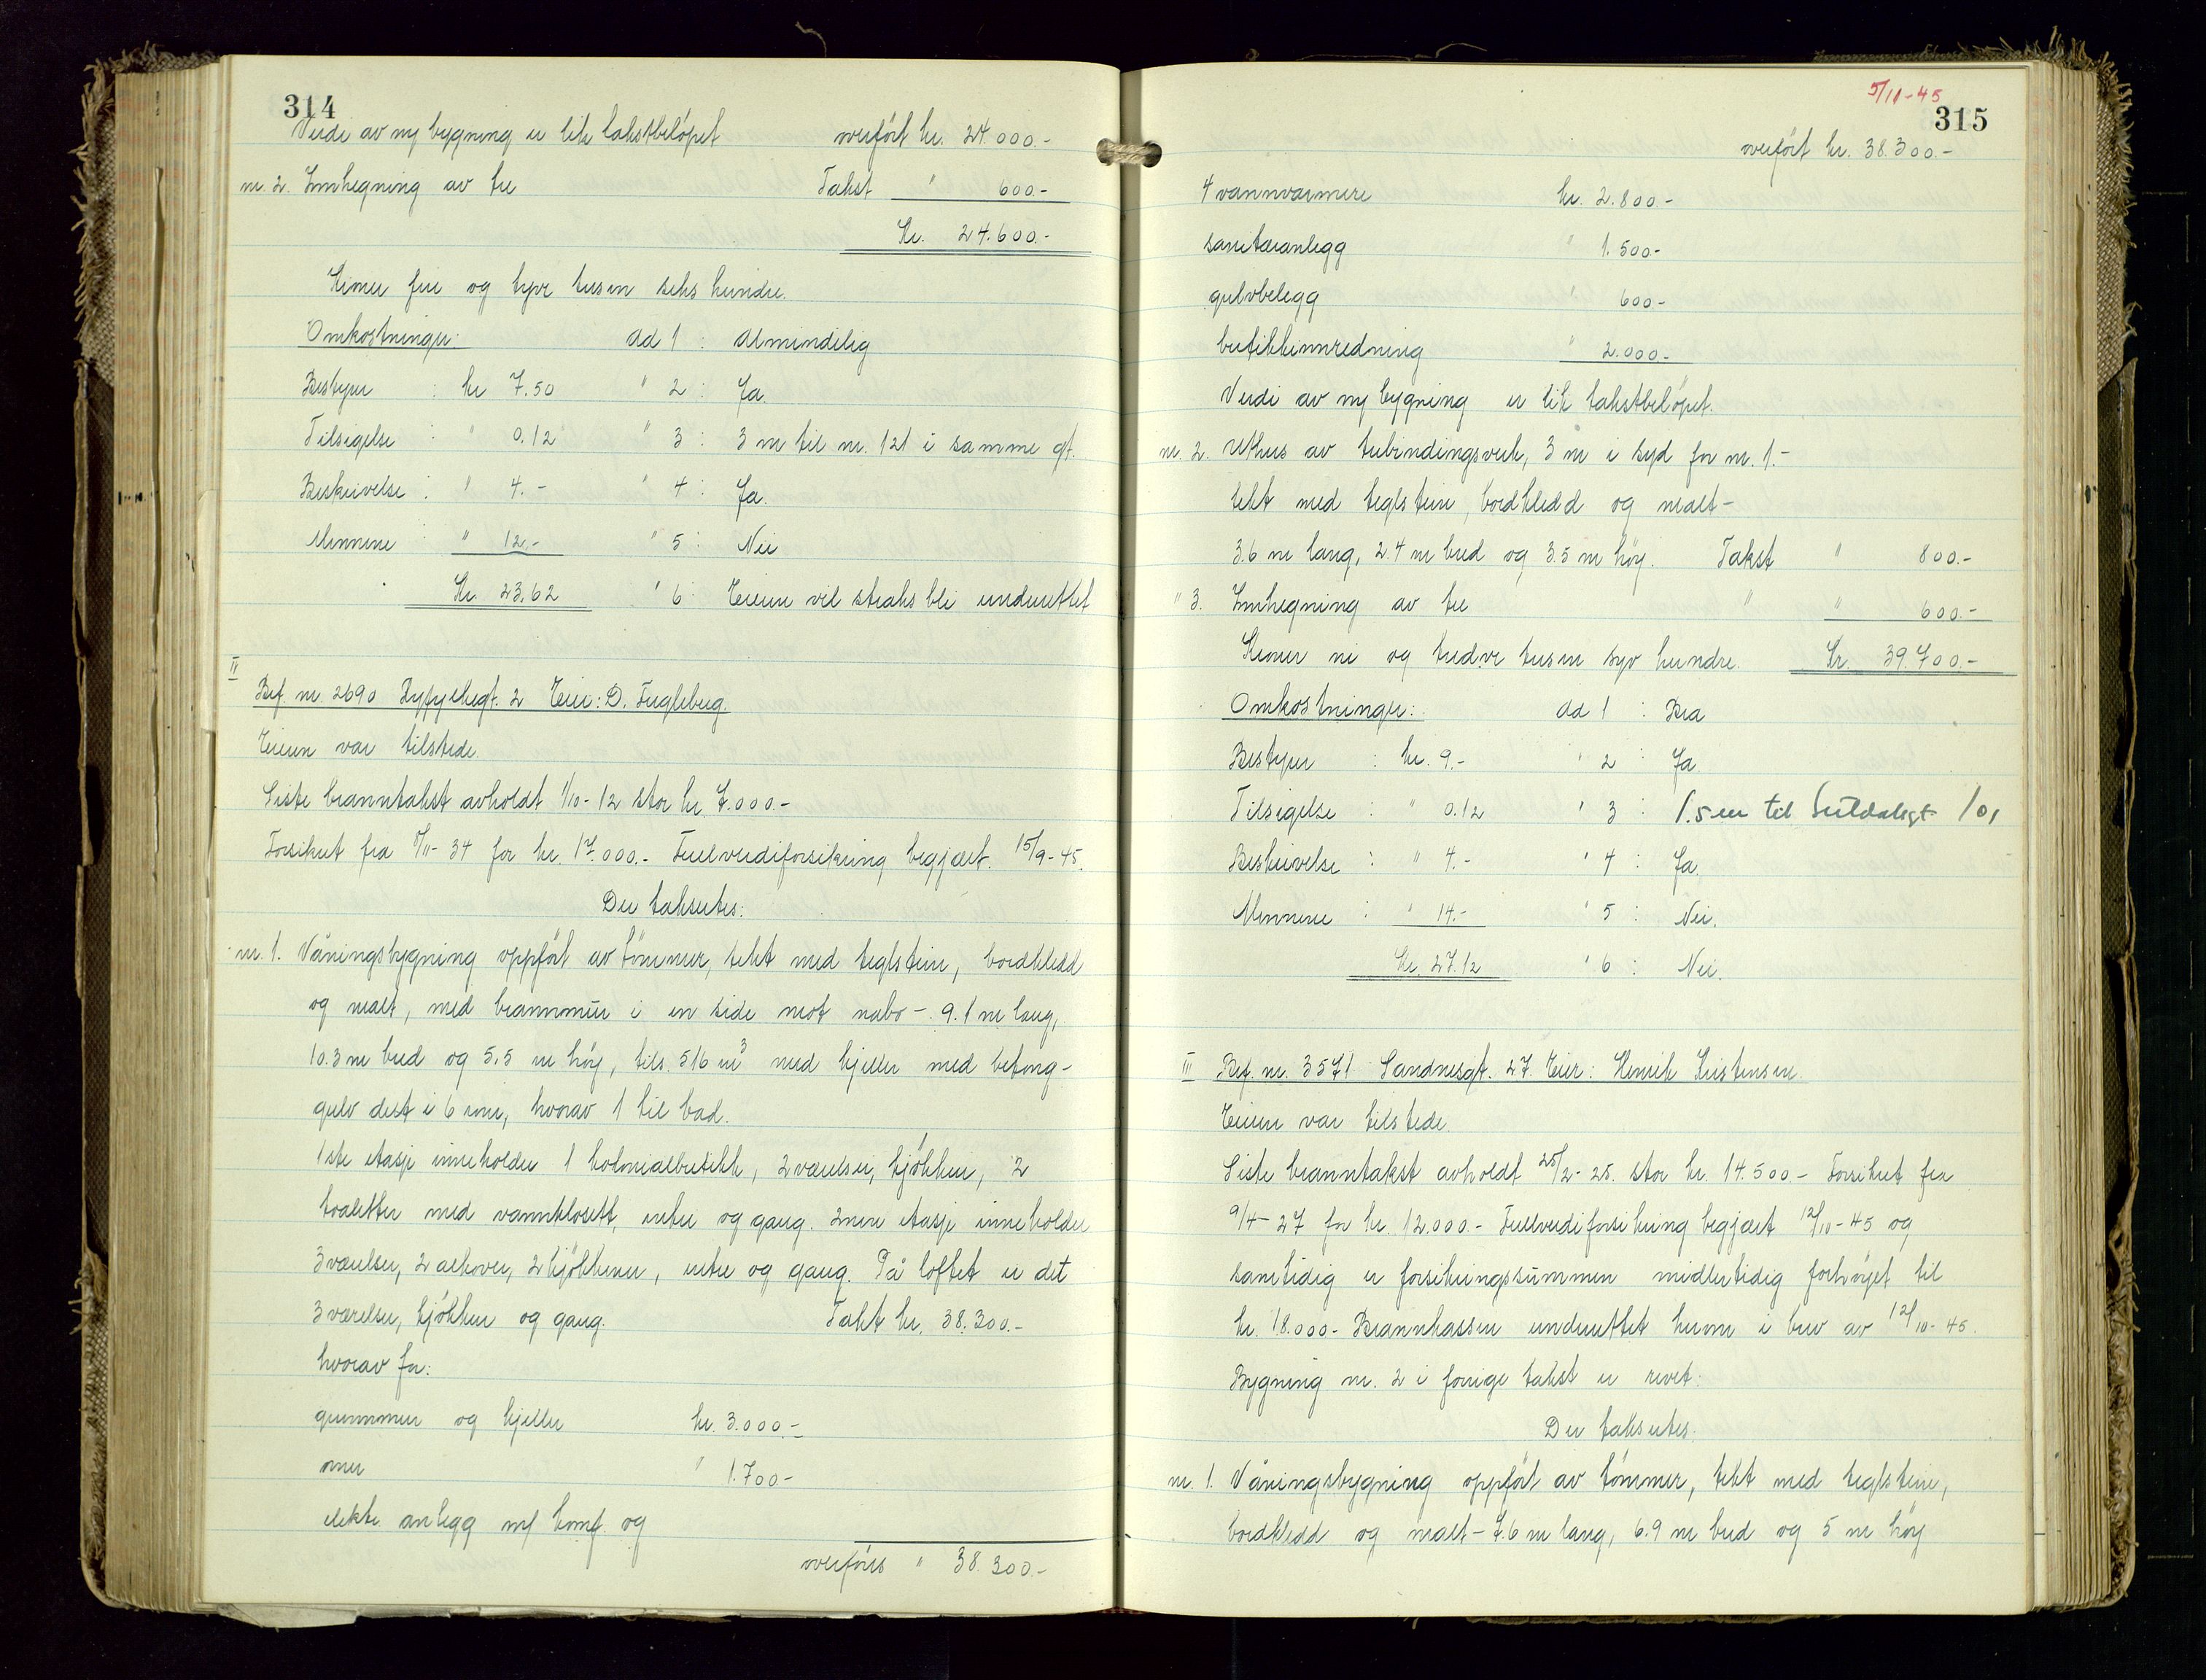 314
Verdi av ny bygning er lik takstbeløpet overført kr. 24.000.-
nr. 2. Innhegning av tre Takst " 600.-
Kr. 24.600.-
Kroner fire og tyve tusen seks hundre.
Omkostninger: ad 1 : Almindelig
Bestyrer : kr 7.50 " 2 : Ja.
Tilsigelse : " 0.12 " 3 : 3 m til nr. 121 i samme gt.
Beskrivelse : " 4.- " 4 : Ja.
Mennene : " 12.- " 5 : Nei
Kr. 23.62 " 6 : Eieren vil straks bli underrettet
II
Bef. nr. 2690 2 Eier: D. Fugleberg.
Eieren var tilstede.
Siste branntakst avholdt 1/10-12 stor kr. 7.000.-
Forsikret fra /11-34 for kr. 17.000.- Fullverdiforsikring begjært 15/9-45.
Der takseres:
nr. 1. Våningsbygning oppført av tömmer, tekt med teglstein, bordkledd
og malt, med brannmur i en side mot nabo - 9.1 m lang,
10.3 m bred og 5.5 m høy, tils. 516 m³ med kjeller med betong-
gulv delt i 6 rum, hvorav 1 til bad.
1ste etasje inneholder 1 kolonialbutikk, 2 værelser, kjøkken, 2
toaletter med vannklosett, entre og gang. 2nen etasje inneholder
3 værelser, 2 alkover, 2 kjøkkener, entre og gang. På loftet er det
3 værelser, kjøkken og gang. Takst kr. 38.300.-
hvorav for:
grunnmur og kjeller kr. 3.000.-
ovner " 1.700.-
elektr. anlegg m/ komf. og
overføres " 38.300.-
5/11-45
315
overført kr. 38.300.-
4 vannvarmere kr. 2.800.-
sanitæranlegg " 1.500.-
gulvbelegg " 600.-
butikkinnredning " 2.000.-
Verdi av ny bygning er lik takstbeløpet.
nr. 2. Uthus av trebindingsverk, 3 m i syd for nr. 1.-
tekt med teglstein, bordkledd og malt -
3.6 m lang, 2.4 m bred og 3.5 m høy. Takst " 800.-
" 3. Innhegning av tre " " 600.-
Kroner ni og tredve tusen syv hundre. Kr. 39.700.-
Omkostninger: ad 1 : Bra
Bestyrer : kr. 9.- " 2 : Ja.
Tilsigelse : " 0.12 " 3 : 1.5 m til 101
Beskrivelse : " 4.- " 4 : Ja.
Mennene : " 14.- " 5 : Nei.
Kr. 27.12 " 6 : Nei.
III Bef. nr. 3571 Sandnesgt. 27. Eier: Henrik Kristensen.
Eieren var tilstede.
Siste branntakst avholdt 25/2-25. stor kr. 14.500.- Forsikret fra
9/4-27 for kr. 12.000.- Fullverdiforsikring begjært 12/10-45 og
samtidig er forsikringssummen midlertidig forhøyet til
kr. 18.000.- Brannkassen underrettet herom i brev av 12/10-45.
Bygning nr. 2 i forrige takst er revet.
Der takseres:
nr. 1. Våningsbygning oppført av tömmer, tekt med teglstein,
bordkledd og malt - 7.6 m lang, 6.9 m bred og 5 m høy